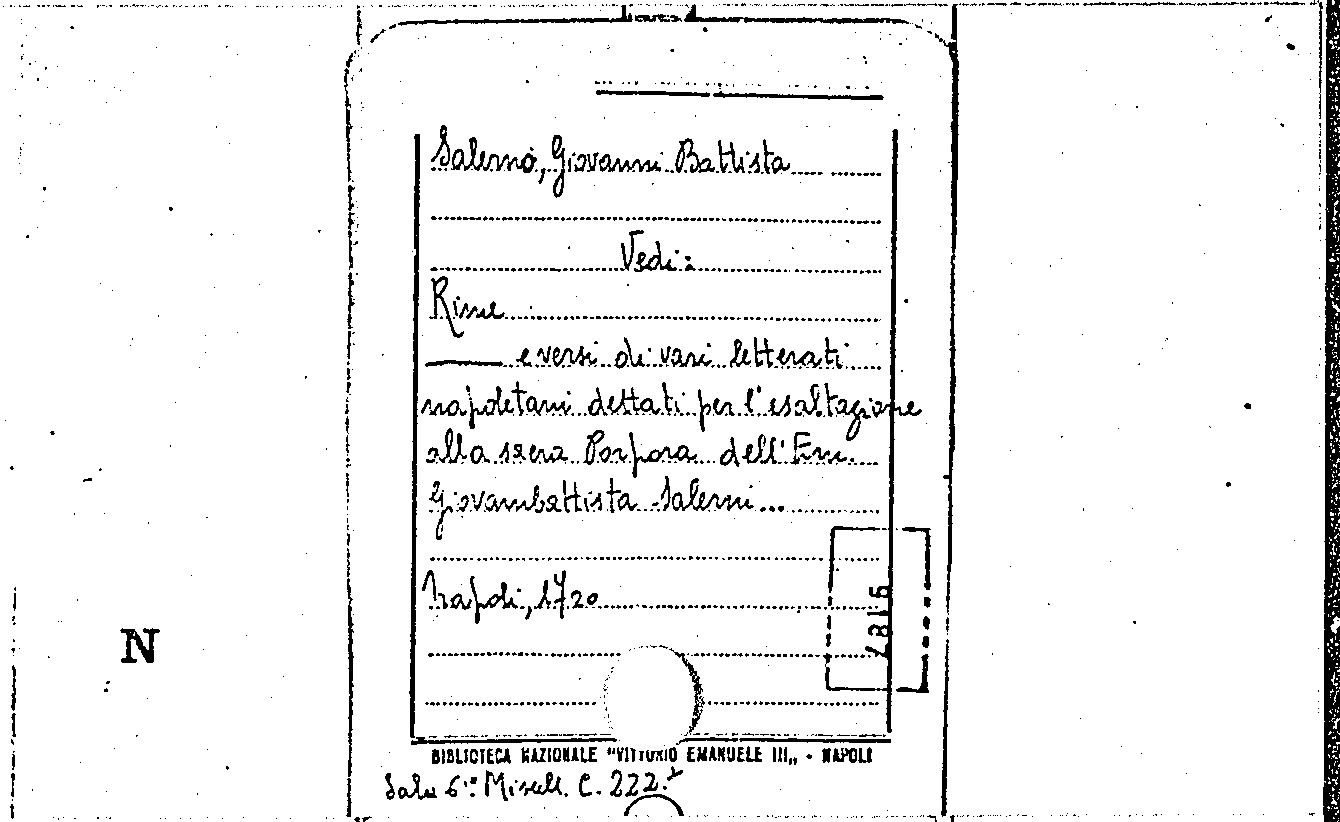 Salerno, Giovanni Battista
Vedi:
Rime
——— e versi di vari letterati
napoletani dettati per l'esaltazione
alla sacra Porpora dell'Em.
Giovambattista Salerni...
Napoli, 1720
N
7815
BIBLIOTECA NAZIONALE "VITTORIO EMANUELE III„ - NAPOLI
Sala 6ª Miscell. C. 222.